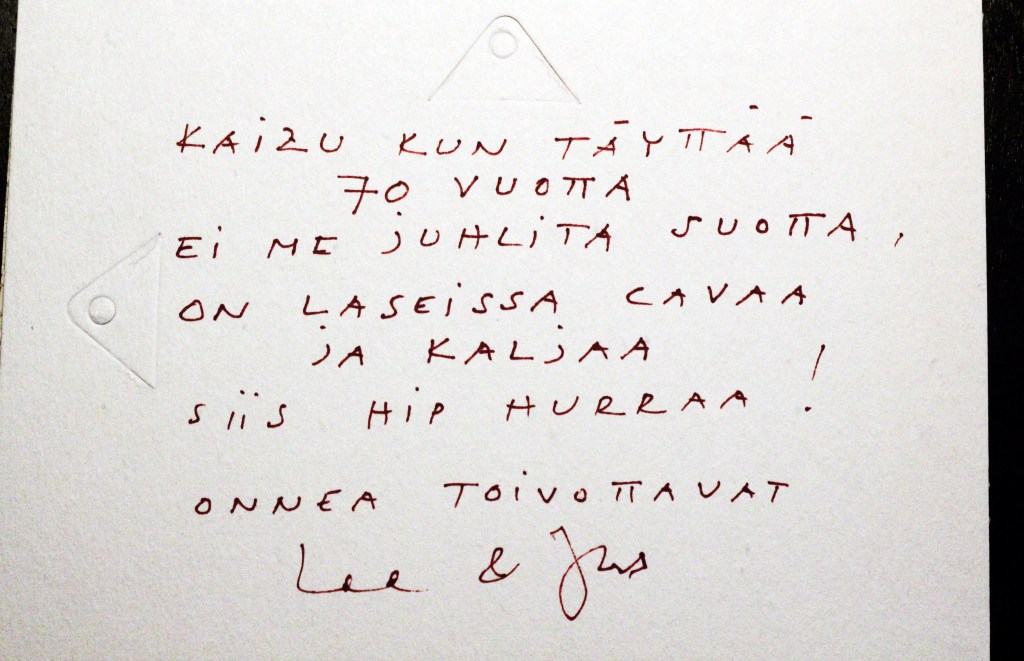 KAiZU KUN TÄYTTÄÄ
70 VUOTTA
Ei ME jUHLiTA SUOTTA,
ON LASEiSSA CAVAA
jA KALjAA
SiiS HiP HURRAA!
ONNEA TOiVOTTAVAT
Lee &